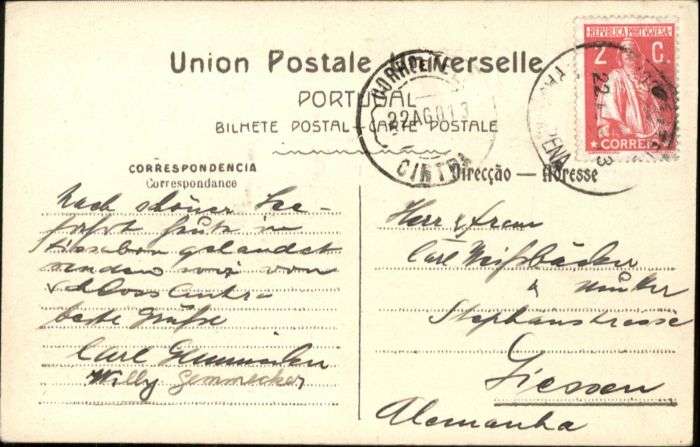 Union Postale Universelle
PORTUGAL
BILHETE POSTAL — CARTE POSTALE
REPUBLICA PORTUGUESA
2 C.
CORREIO
CORREIO E
22 AGO 13
CINTRA
22
3
PENA
CORRESPONDENCIA
Correspondance
Nach schöner See-
fahrt heute in
Lissabon gelandet
senden wir von
Schloss Cintra
beste Grüße
Carl
Willy Gemmecker
Direcção — Adresse
Herr & Frau
Carl Weißbäcker
u
Stephanstrasse
Giessen
Alemanha